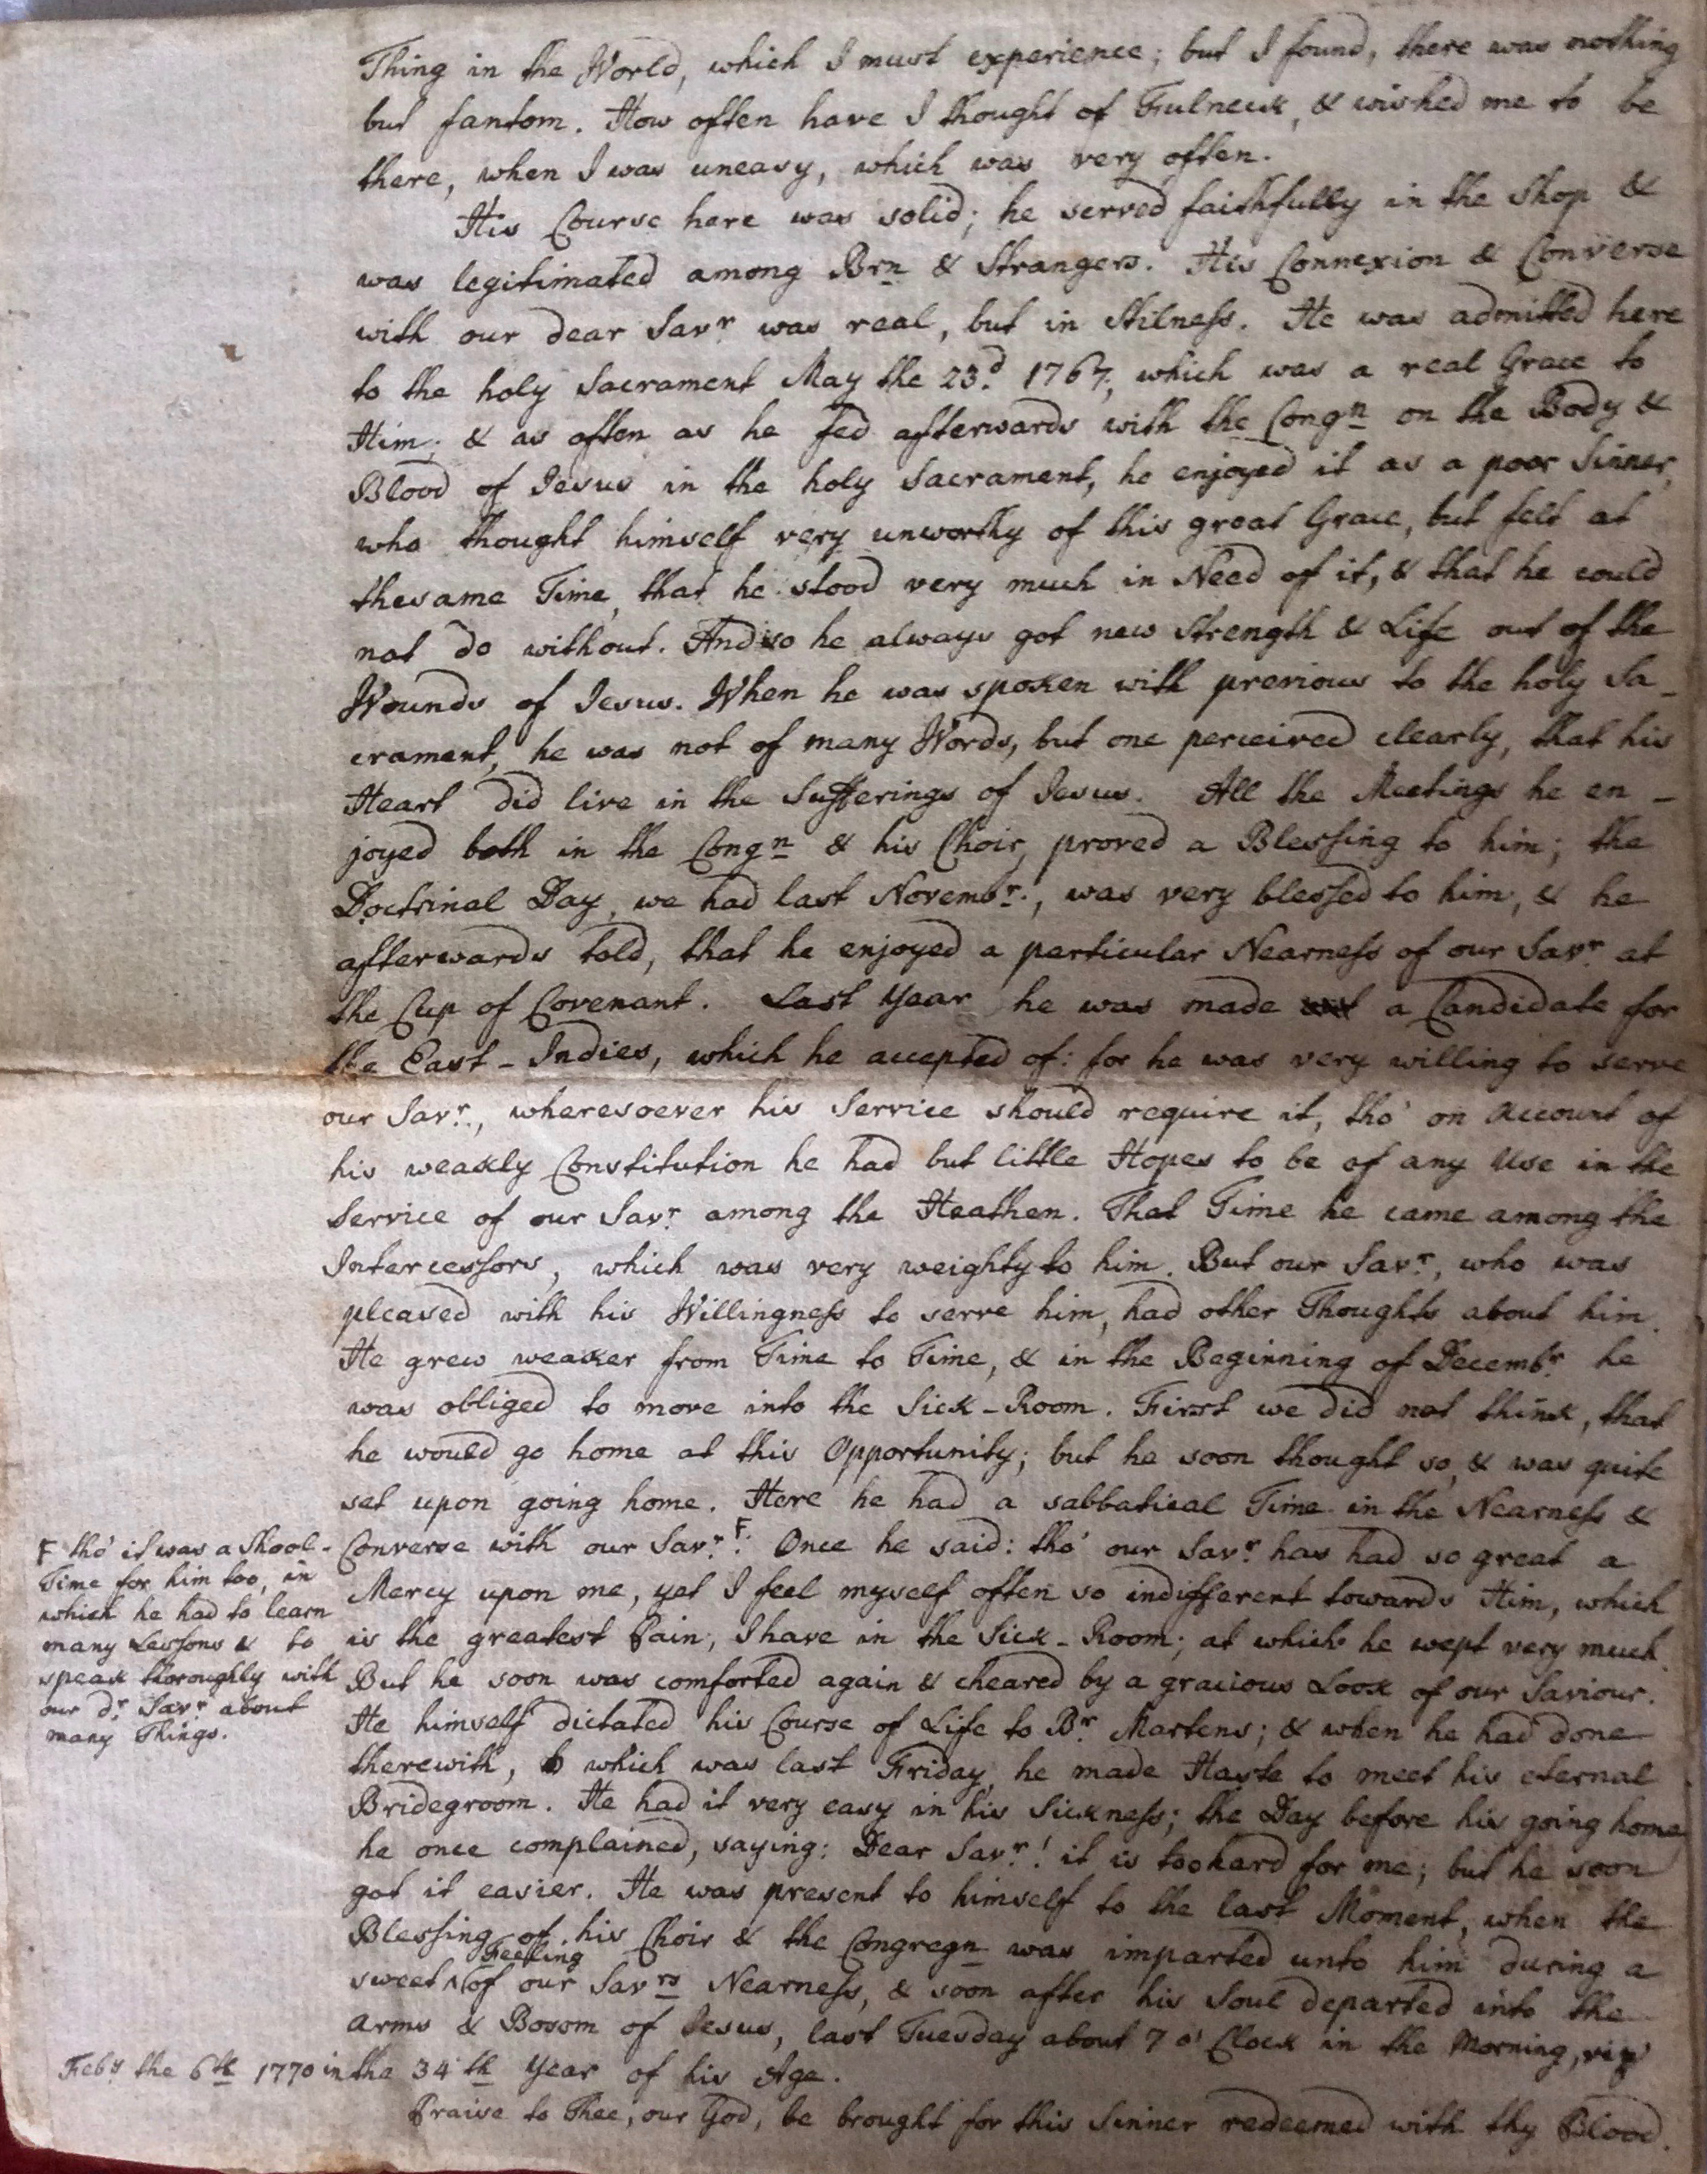 Thing in the World, which I must experience; but I found, there was nothing
but fantom. How often have I thought of Fulneck, & wished me to be
there, when I was uneasy, which was very often.
His Course here was solid; he served faithfully in the Shop &
was legitimated among Brn & Strangers. His Connexion & Converse
with our dear Savr. was real, but in Stilness. He was admitted here
to the holy Sacrament May the 23d. 1767, which was a real Grace to
Him; & as often as he fed afterwards with the Congn on the Body &
Blood of Jesus in the holy Sacrament, he enjoyed it as a poor Sinner,
who thought himself very unworthy of this great Grace, but felt at
thesame Time, that he stood very much in Need of it, & that he could
not do without. And so he always got new Strength & Life out of the
Wounds of Jesus. When he was spoken with previous to the holy Sa-
crament, he was not of many Words, but one perceived clearly, that his
Heart did live in the Sufferings of Jesus. All the Meetings he en-
joyed both in the Congn & his Choir, proved a Blessing to him; the
Doctrinal Day, we had last Novembr., was very blessed to him, & he
afterwards told, that he enjoyed a particular Nearness of our Savr. at
the Cup of Covenant. Last Year he was made a Candidate for
the East-Indies, which he accepted of: for he was very willing to serve
our Savr., wheresoever his Service should require it, tho' on Account of
his weakly Constitution he had but little Hopes to be of any Use in the
Service of our Savr. among the Heathen. That Time he came among the
Intercessors, which was very weighty to him. But our Savr., who was
pleased with his Willingness to serve him, had other Thoughts about him.
He grew weaker from Time to Time, & in the Beginning of Decembr. he
was obliged to move into the Sick-Room. First we did not think, that
he would go home at this Opportunity; but he soon thought so, & was quite
set upon going home. Here he had a sabbatical Time in the Nearness &
Converse with our Savr. F. Once he said: tho' our Savr. has had so great a
F tho' it was a Shool-
Time for him too, in
which he had to learn
many Lessons & to
speak thoroughly with
our dr. Savr. about
many Things.
Mercy upon me, yet I feel myself often so indifferent towards Him, which
is the greatest Pain, I have in the Sick-Room; at which he wept very much.
But he soon was comforted again & cheared by a gracious Look of our Saviour.
He himself dictated his Course of Life to Br. Martens; & when he had done
therewith, which was last Friday, he made Haste to meet his eternal
Bridegroom. He had it very easy in his Sickness; the Day before his going home,
he once complained, saying: Dear Savr.! it is too hard for me; but he soon
got it easier. He was present to himself to the last Moment, when the
Blessing of his Choir & the Congregn was imparted unto him during a
sweet Feeling of our Savrs Nearness, & soon after his Soul departed into the
Arms & Bosom of Jesus, last Tuesday about 7 o' Clock in the Morning, viz
Feby the 6th 1770 in the 34th Year of his Age.
Praise to Thee, our God, be brought for this Sinner redeemed with thy Blood.